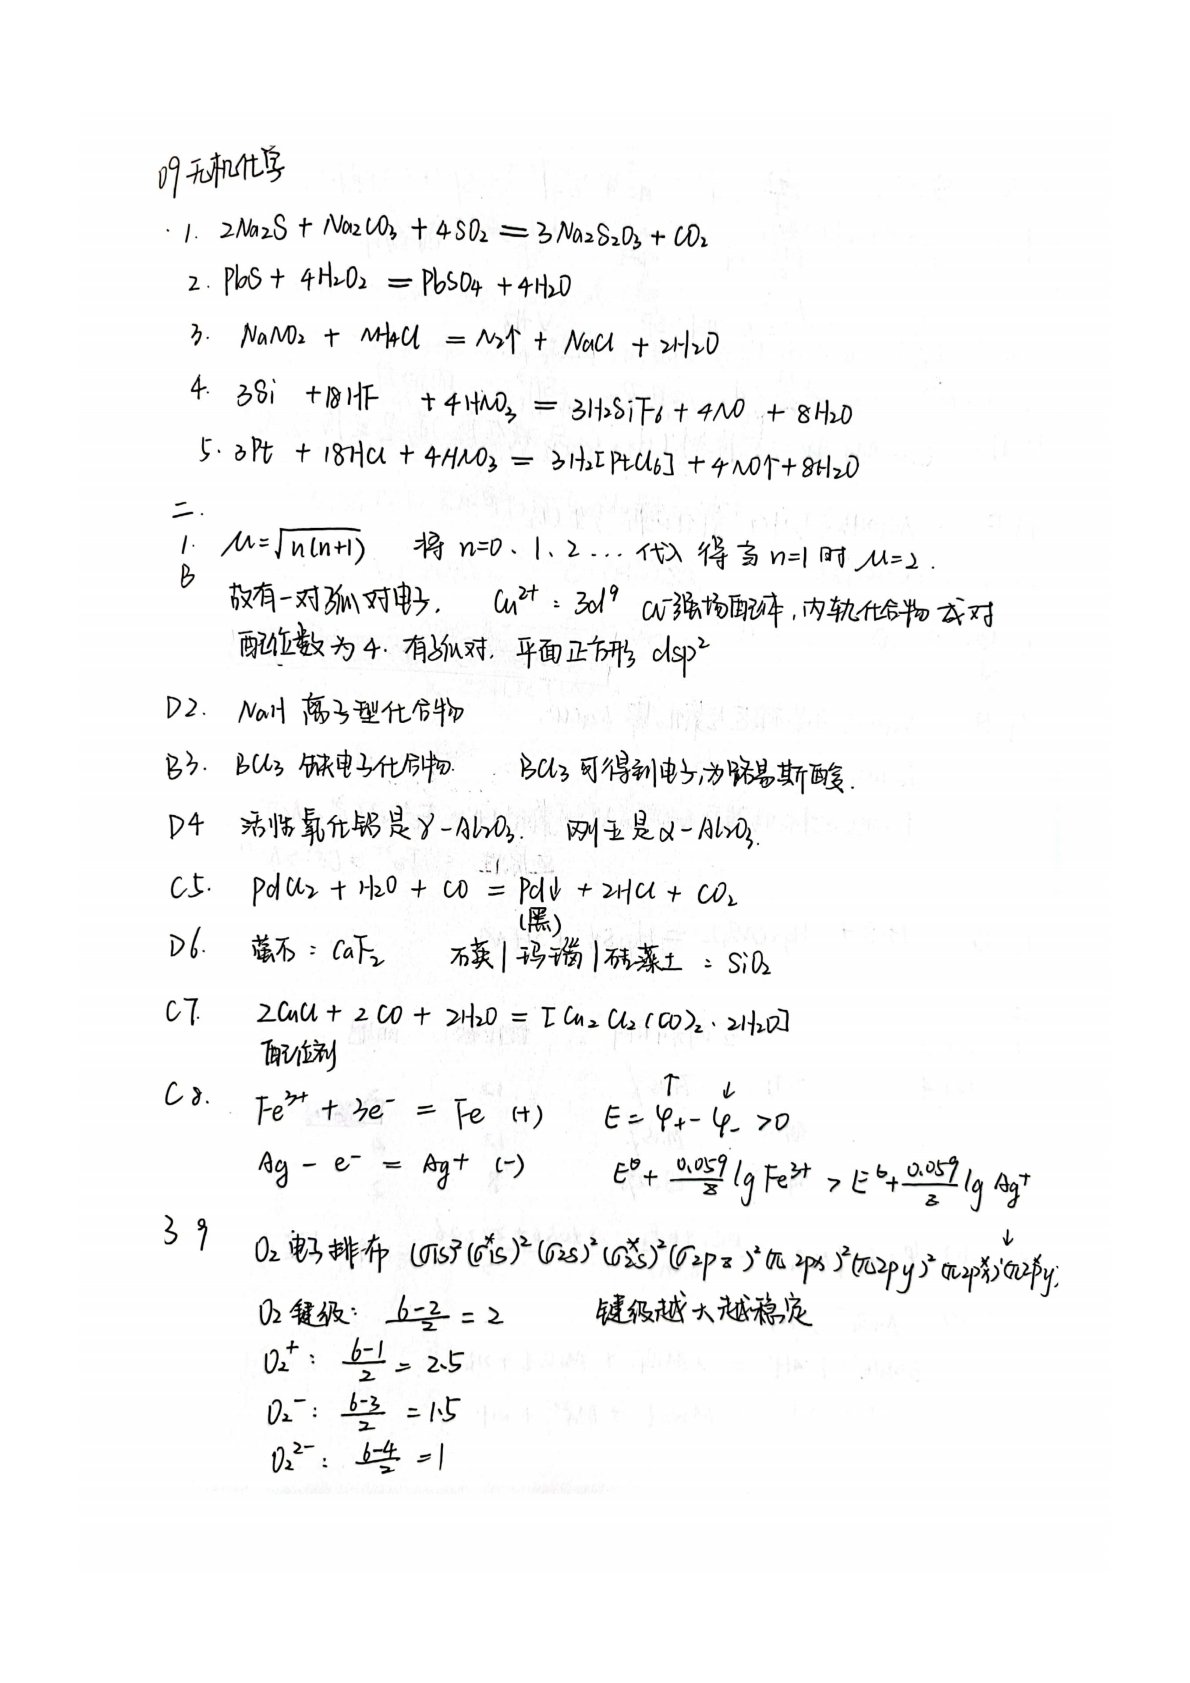 09无机化学
1. 2Na2S + Na2CO3 + 4SO2 = 3Na2S2O3 + CO2
2. PbS + 4H2O2 = PbSO4 + 4H2O
3. NaNO2 + NH4Cl = N2↑ + NaCl + 2H2O
4. 3Si + 18HF + 4HNO3 = 3H2SiF6 + 4NO + 8H2O
5. 3Pt + 18HCl + 4HNO3 = 3H2[PtCl6] + 4NO↑ + 8H2O
二.
1. μ=√n(n+1) 将 n=0、1、2... 代入 得 当 n=1 时 μ=2.
B
故有一对孤对电子. Cu2+ : 3d9 强场配体, 内轨化合物 成对
配位数为 4. 有孤对. 平面正方形 dsp2
D2. NaH 离子型化合物
B3. BCl3 缺电子化合物. BCl3 可得到电子,为路易斯酸.
D4 活性氧化铝是 γ-Al2O3. 刚玉是 α-Al2O3.
C5. PdCl2 + H2O + CO = Pd↓ + 2HCl + CO2
(黑)
D6. 萤石 : CaF2 石英 | 玛瑙 | 硅藻土 : SiO2
C7. 2CuCl + 2CO + 2H2O = [Cu2Cl2(CO)2·2H2O]
配位剂
C8. Fe3+ + 3e- = Fe (+) E = φ+↑ - φ-↓ >0
Ag - e- = Ag+ (-) Eθ + 0.059/3 lg Fe3+ > Eθ + 0.059/3 lg Ag+ ↓
3 9 O2 电子排布 (σ1s)2(σ*1s)2(σ2s)2(σ*2s)2(σ2pz)2(π2px)2(π2py)2(π2p*x)1(π2p*y)1
O2 键级: 6-2/2 = 2 键级越大越稳定
O2+ : 6-1/2 = 2.5
O2- : 6-3/2 = 1.5
O22- : 6-4/2 = 1